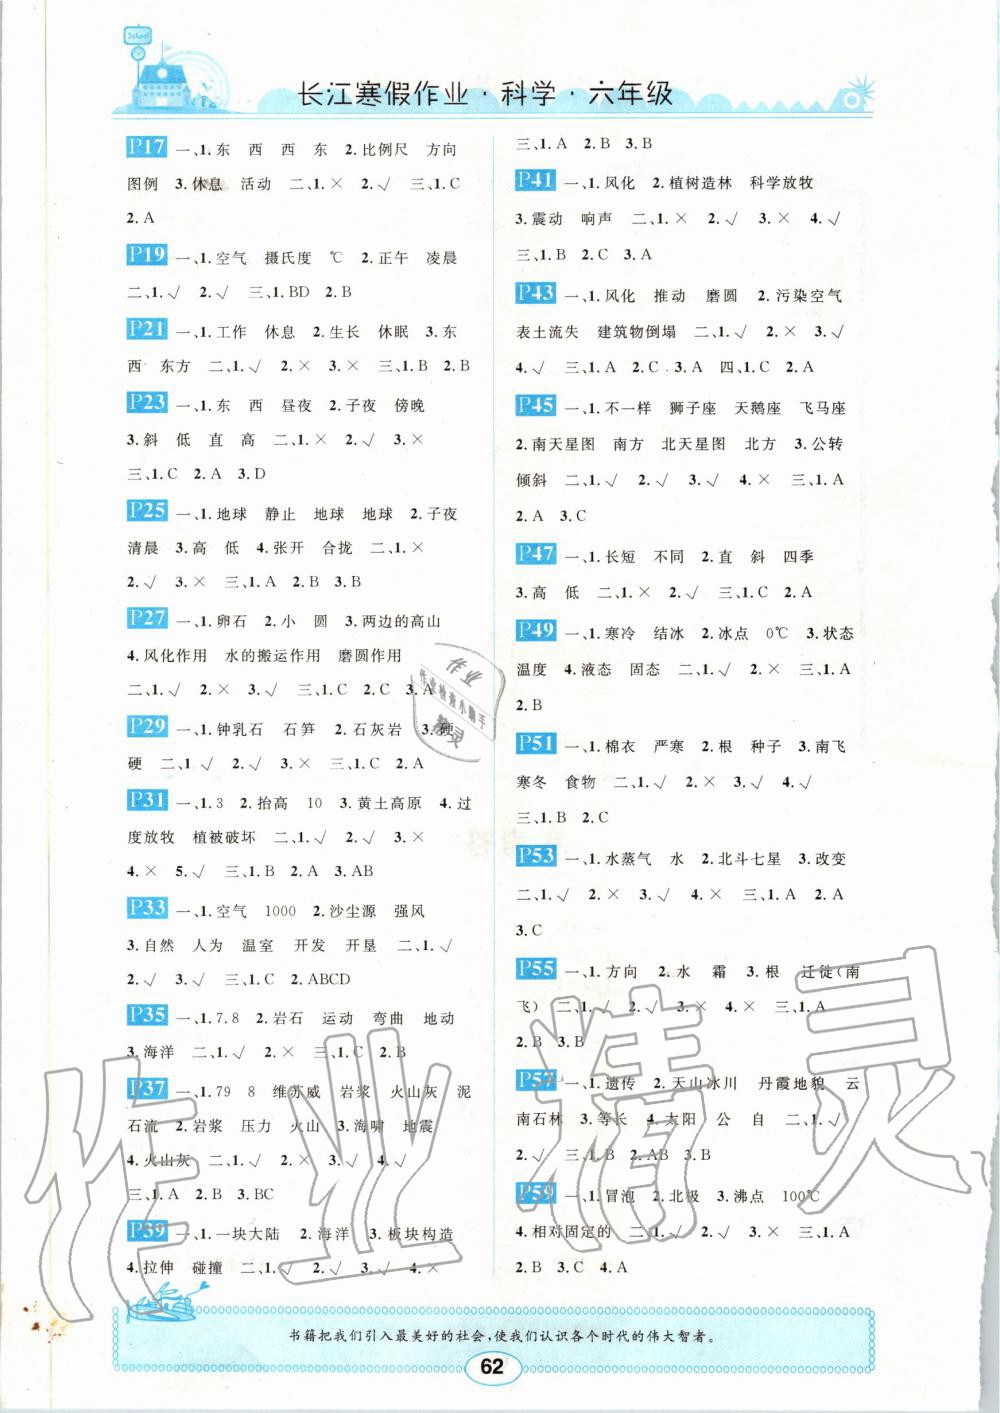 School
长江寒假作业·科学·六年级
P17 一、1.东 西 西 东 2.比例尺 方向
图例 3.休息 活动 二、1.× 2.√ 三、1.C
2.A
P19 一、1.空气 摄氏度 ℃ 2.正午 凌晨
二、1.√ 2.√ 三、1.BD 2.B
P21 一、1.工作 休息 2.生长 休眠 3.东
西 东方 二、1.√ 2.× 3.× 三、1.B 2.B
P23 一、1.东 西 昼夜 2.子夜 傍晚
3.斜 低 直 高 二、1.× 2.√ 3.×
三、1.C 2.A 3.D
P25 一、1.地球 静止 地球 地球 2.子夜
清晨 3.高 低 4.张开 合拢 二、1.×
2.√ 3.× 三、1.A 2.B 3.B
P27 一、1.卵石 2.小 圆 3.两边的高山
4.风化作用 水的搬运作用 磨圆作用
二、1.√ 2.× 3.√ 三、1.B 2.C 3.A
P29 一、1.钟乳石 石笋 2.石灰岩 3.硬
硬 二、1.√ 2.√ 3.√ 三、1.B 2.C
P31 一、1.3 2.抬高 10 3.黄土高原 4.过
度放牧 植被破坏 二、1.√ 2.√ 3.×
4.× 5.√ 三、1.B 2.A 3.A
P33 一、1.空气 1000 2.沙尘源 强风
3.自然 人为 温室 开发 开垦 二、1.√
2.× 3.√ 三、1.C 2.ABCD
P35 一、1.7.8 2.岩石 运动 弯曲 地动
3.海洋 二、1.√ 2.√ 三、1.C 2.B
P37 一、1.79 8 维苏威 岩浆 火山灰 泥
石流 2.岩浆 压力 火山 3.海啸 地震
4.火山灰 二、1.√ 2.√ 3.√ 4.√
三、1.A 2.B 3.BC
P39 一、1.一块大陆 2.海洋 3.板块构造
4.拉伸 碰撞 二、1.√ 2.√ 3.√ 4.×
三、1.A 2.B 3.B
P41 一、1.风化 2.植树造林 科学放牧
3.震动 响声 二、1.× 2.√ 3.× 4.√
三、1.B 2.C 3.A
P43 一、1.风化 推动 磨圆 2.污染空气
表土流失 建筑物倒塌 二、1.√ 2.× 3.√
4.√ 三、1.A 2.C 3.A 四、1.C 2.A
P45 一、1.不一样 狮子座 天鹅座 飞马座
2.南天星图 南方 北天星图 北方 3.公转
倾斜 二、1.√ 2.√ 3.√ 4.× 三、1.A
2.A 3.C
P47 一、1.长短 不同 2.直 斜 四季
3.高 低 二、1.× 2.√ 3.√ 三、1.A
P49 一、1.寒冷 结冰 2.冰点 0℃ 3.状态
温度 4.液态 固态 二、1.× 2.√ 三、1.A
2.B
P51 一、1.棉衣 严寒 2.根 种子 3.南飞
寒冬 食物 二、1.√ 2.× 3.√ 4.√
三、1.B 2.C
P53 一、1.水蒸气 水 2.北斗七星 3.改变
二、1.√ 2.× 3.√ 三、1.A 2.A
3.C
P55 一、1.方向 2.水 霜 3.根 迁徙(南
飞) 二、1.√ 2.√ 3.× 4.× 三、1.A
2.B 3.B
P57 一、1.遗传 2.天山冰川 丹霞地貌 云
南石林 3.等长 4.太阳 公 自 二、1.√
2.√ 3.× 三、1.B 2.AB 3.B
P59 一、1.冒泡 2.北极 3.沸点 100℃
4.相对固定的 二、1.√ 2.× 3.√ 三、1.A
2.B 3.C 4.A
作业
作业检查小助手
精灵
作业精灵
书籍把我们引入最美好的社会,使我们认识各个时代的伟大智者。
62